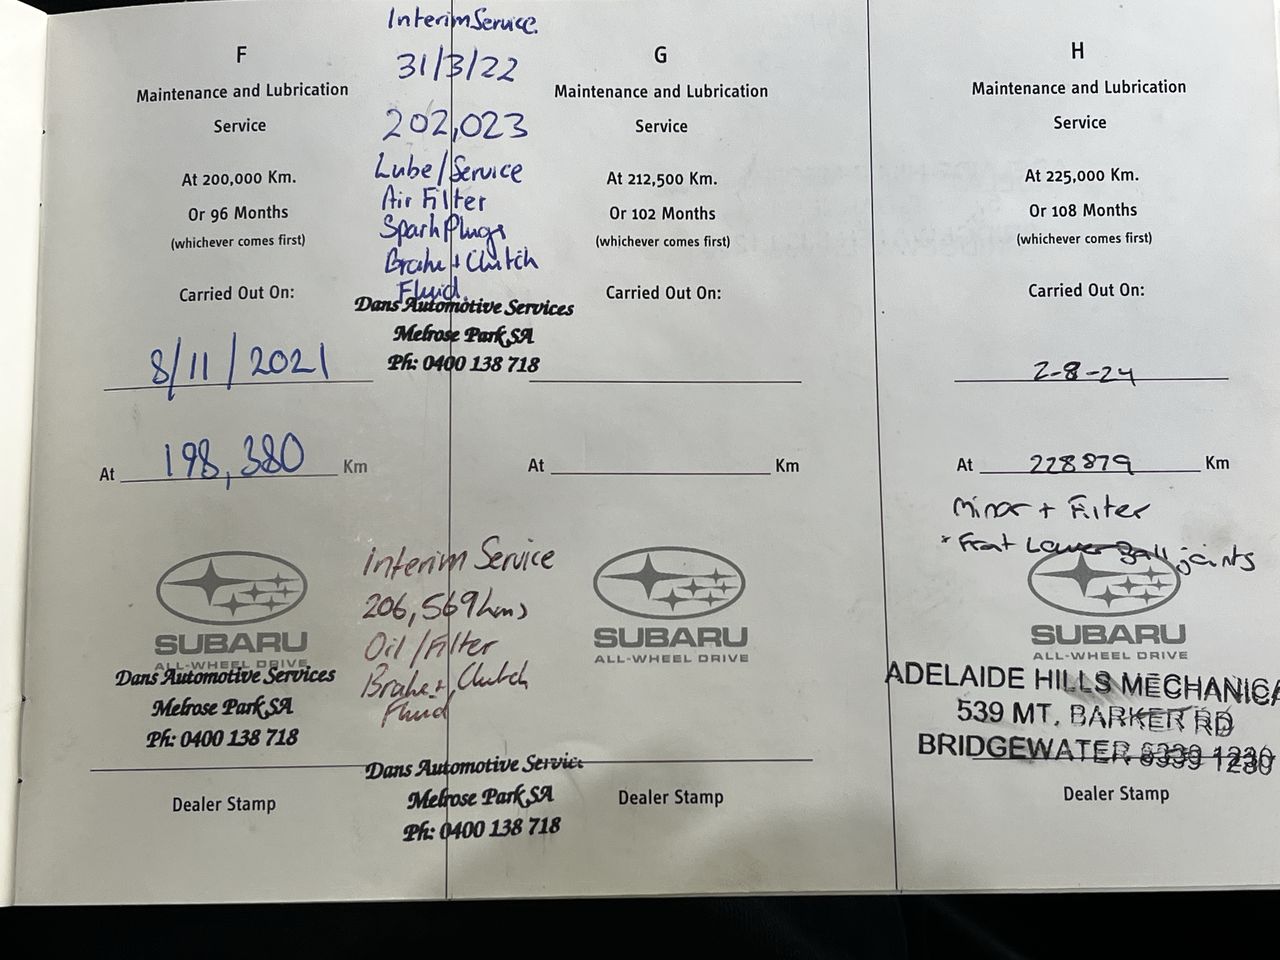 F
Maintenance and Lubrication
Service
At 200,000 Km.
Or 96 Months
(whichever comes first)
Carried Out On:
8/11/2021
At 198,380 Km
SUBARU
ALL-WHEEL DRIVE
Dans Automotive Services
Melrose Park,SA
Ph: 0400 138 718
Dealer Stamp
Interim Service.
31/3/22
202,023
Lube/Service
Air Filter
Spark Plugs
Brake + Clutch
Fluid.
Dans Automotive Services
Melrose Park,SA
Ph: 0400 138 718
Interim Service
206,569kms
Oil/Filter
Brake + Clutch
Fluid
Dans Automotive Service
Melrose Park,SA
Ph: 0400 138 718
G
Maintenance and Lubrication
Service
At 212,500 Km.
Or 102 Months
(whichever comes first)
Carried Out On:
At Km
SUBARU
ALL-WHEEL DRIVE
Dealer Stamp
H
Maintenance and Lubrication
Service
At 225,000 Km.
Or 108 Months
(whichever comes first)
Carried Out On:
2-8-24
At 228879 Km
Minor + Filter
* Front Lower Ball joints
SUBARU
ALL-WHEEL DRIVE
ADELAIDE HILLS MECHANICA
539 MT. BARKER RD
BRIDGEWATER 8339 1230
Dealer Stamp